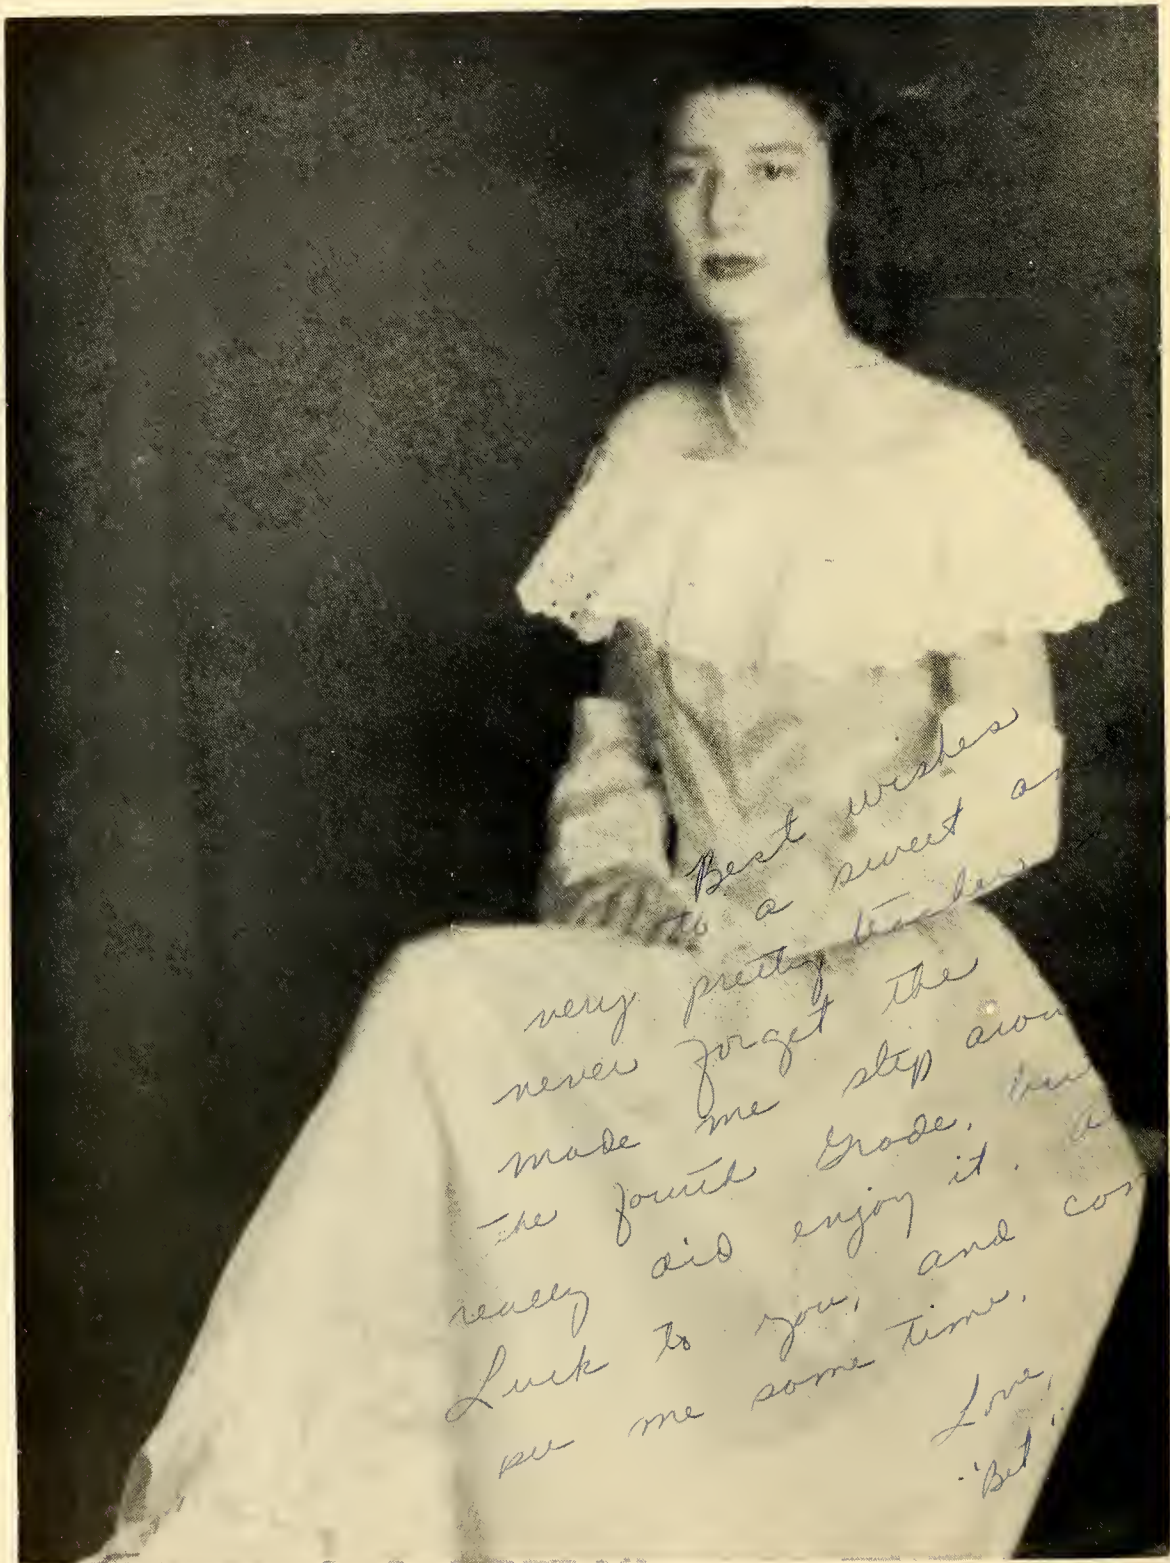 Best wishes
to a sweet
very pretty teacher
never forget the
made me step
the fourth Grade,
really did enjoy it.
Luck to you, and
see me some time.
Love,
"Bet"